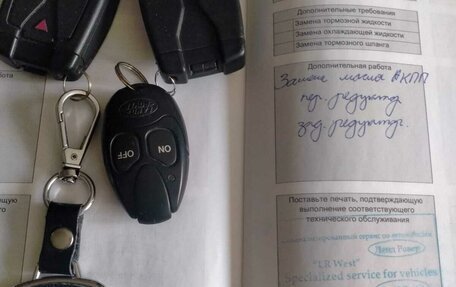 Дополнительные требования
Замена тормозной жидкости
Замена охлаждающей жидкости
Замена тормозного шланга
Дополнительная работа
Замена масла АКПП
пер. редуктор.
зад. редуктор.
Поставьте печать, подтверждающую
выполнение соответствующего
технического обслуживания
Ленд Ровер
"LR West"
Specialized service for vehicles
LAND
ROVER
OFF
ON